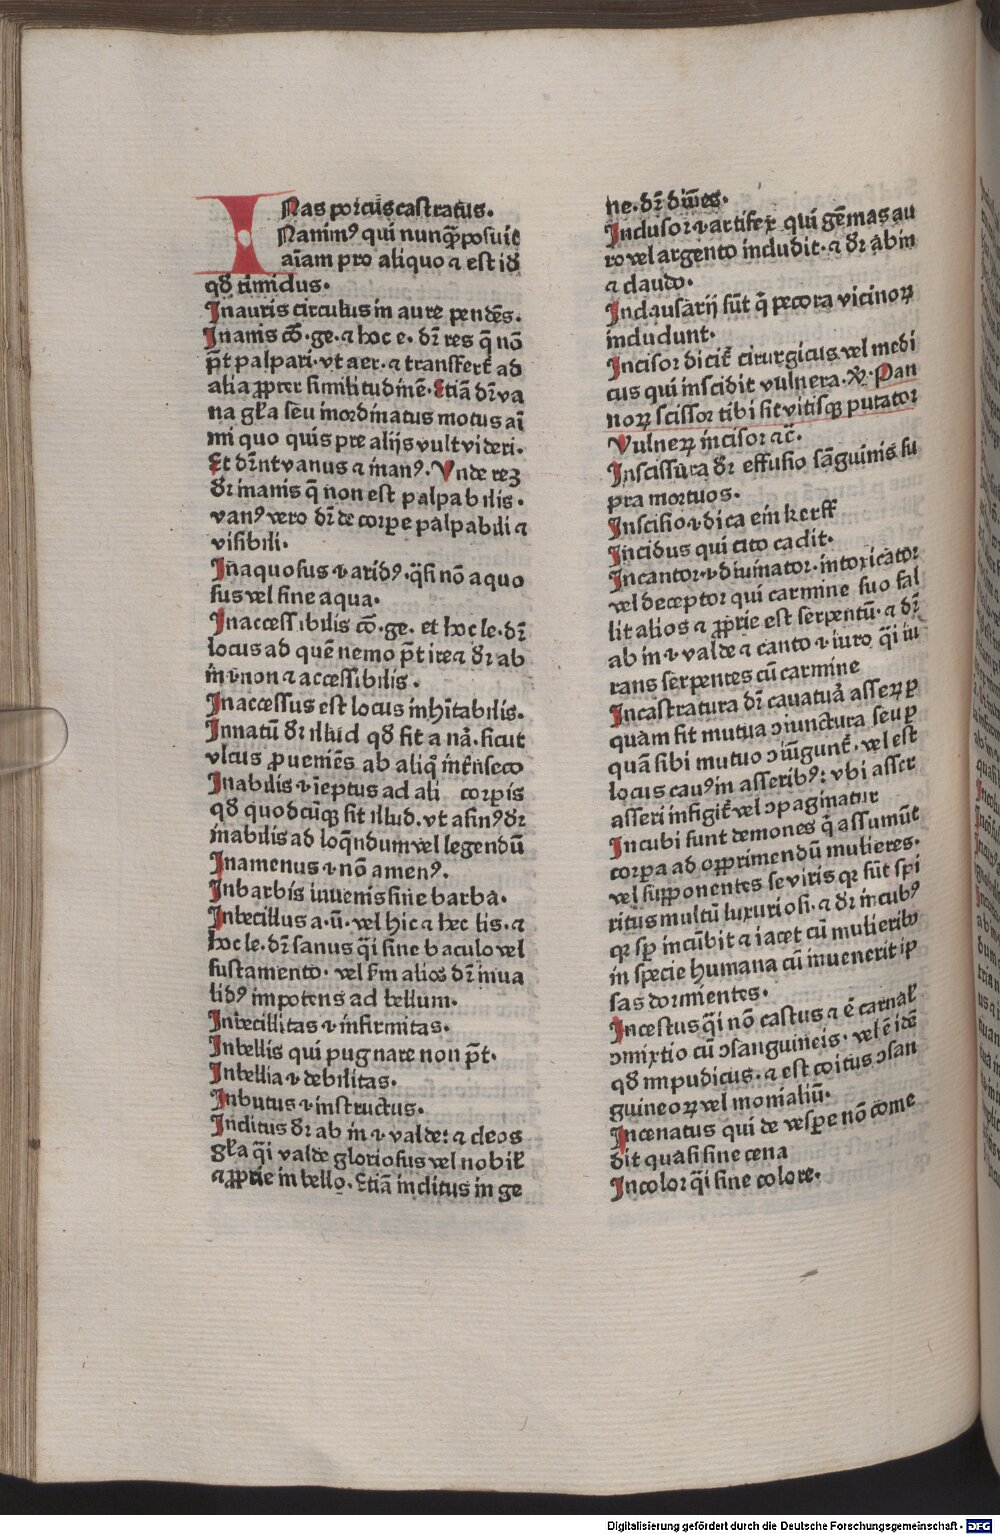 INas porcus castratus.
Nanimꝰ qui nunq̃ posuit
aĩam pro aliquo ⁊ est id̃
qđ timidus.
Inauris circulus in aure pendẽs.
Inanis cõ.ge.⁊ hoc e. dr̃ res q̃ nõ
p̃t palpari. vt aer. ⁊ transfertᷣ ad
alia ꝓpter similitudinẽ. Etiã dr̃ va
na gl̃a seu inordinatus motus ai
mi quo quis pre alijs vult videri.
Et dr̃nt vanus ⁊ inanꝰ. Vnde reꝫ
đr inanis q̃ non est palpabilis.
vanꝰ vero dr̃ de corpe palpabili ⁊
visibili.
Inaquosus .i. aridꝰ. q̃si nõ aquo
sus vel sine aqua.
Inaccessibilis cõ.ge. et hoc le. dr̃
locus ad quẽ nemo p̃t ire ⁊ đr ab
in .i. non ⁊ accessibilis.
Inaccessus est locus inhĩtabilis.
Innatũ đr illud qđ fit a nã. sicut
vlcus ꝓueniẽs ab aliq̃ intᷣnseco
Inabilis .i. ĩeptus ad ali corpis
qđ quodcũqꝫ sit illud. vt asinꝰ đr
inabilis ad loq̃ndum vel legendũ
Inamenus .i. nõ amenꝰ.
Inbarbis iuuenis sine barba.
Inbecillus a.ũ. vel hic ⁊ hec lis. ⁊
hoc le. dr̃ sanus q̃i sine baculo vel
sustamento. vel s̃m alios dr̃ inua
lidꝰ impotens ad bellum.
Inbecillitas .i. infirmitas.
Inbellis qui pugnare non p̃t.
Inbellia .i. debilitas.
Inbutus .i. instructus.
Inclitus đr ab in .i. valde: ⁊ cleos
gl̃a q̃i valde gloriosus vel nobil̃
⁊ ꝓprie in bello. Etiã inclitus in ge
ne. dr̃ diuẽs.
Inclusor .i. artifex qui gẽmas au
ro vel argento includit. ⁊ đr ab in
⁊ claudo.
Inclausarij sũt q̃ pecora vicinoꝝ
includunt.
Incisor dicitᷣ cirurgicus vel medi
cus qui inscidit vulnera. Pan
noꝝ scissor tibi sit vitisqꝫ putator
Vulneꝝ incisor ⁊c̃.
Inscissura đr effusio sãguinis su
pra mortuos.
Inscisio .i. dica ein kerff
Incidus qui cito cadit.
Incantor .i. diuinator. intoxicator
vel deceptor qui carmine suo fal
lit alios ⁊ ꝓprie est serpentũ. ⁊ dr̃
ab in .i. valde ⁊ canto .i. iuro q̃i iu
rans serpentes cũ carmine
Incastratura dr̃ cauatura asseꝝ ꝑ
quam fit mutua ↄiunctura seu ꝑ
quã sibi mutuo ↄiũguntᷣ. vel est
locus cauꝰ in asseribꝰ: vbi asser
asseri infigitᷣ vel ↄpaginatur
Incubi sunt demones q̃ assumũt
corpa ad opprimendũ mulieres.
vel supponentes se viris qꝛ sũt spi
ritus multũ luxuriosi. ⁊ đr incubꝰ
qꝛ sp̃ incũbit ⁊ iacet cũ mulieribꝰ
in specie humana cũ inuenerit ip
sas dormientes.
Incestus q̃i nõ castus ⁊ ẽ carnal̃
ↄmixtio cũ ↄsanguineis. vel ẽ idẽ
qđ impudicus. ⁊ est coitus ↄsan
guineoꝝ vel monialiũ.
Incenatus qui de vespe nõ come
dit quasi sine cena
Incolor q̃i sine colore.
Digitalisierung gefördert durch die Deutsche Forschungsgemeinschaft - DFG